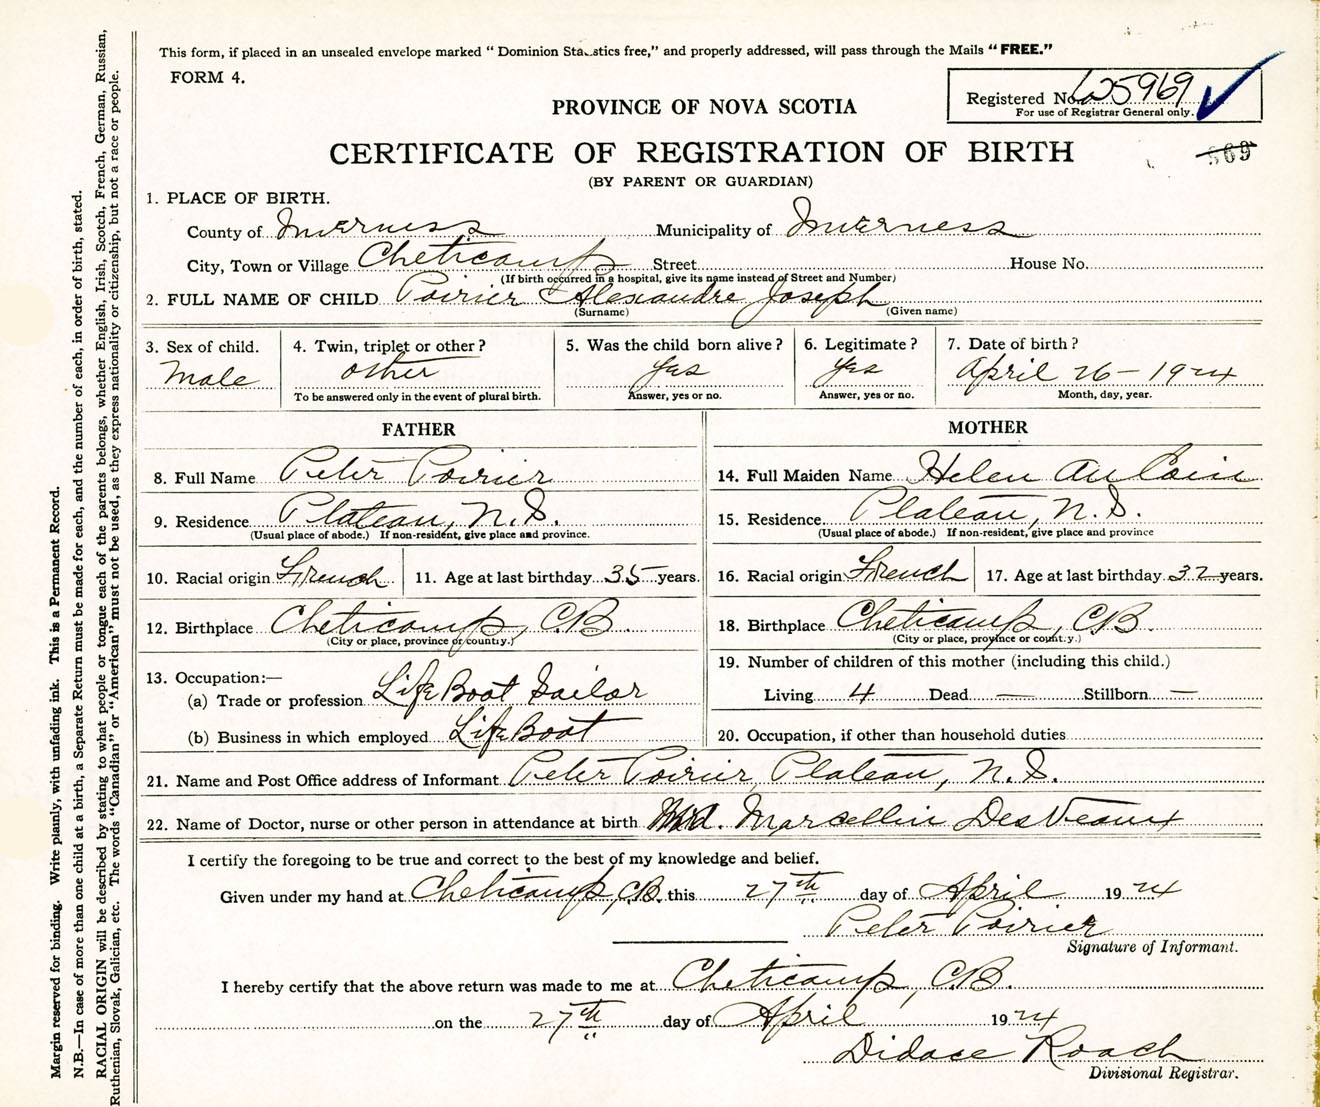 This form, if placed in an unsealed envelope marked " Dominion Sta..stics free," and properly addressed, will pass through the Mails " FREE."
FORM 4.
Registered No. 625969
For use of Registrar General only.
PROVINCE OF NOVA SCOTIA
CERTIFICATE OF REGISTRATION OF BIRTH
869
(BY PARENT OR GUARDIAN)
1. PLACE OF BIRTH.
County of Inverness Municipality of Inverness
City, Town or Village Cheticamp Street House No.
(If birth occurred in a hospital, give its name instead of Street and Number)
2. FULL NAME OF CHILD Poirier Alexandre Joseph
(Surname) (Given name)
3. Sex of child. 4. Twin, triplet or other ? 5. Was the child born alive ? 6. Legitimate ? 7. Date of birth ?
Male other yes yes April 26 - 1924
To be answered only in the event of plural birth. Answer, yes or no. Answer, yes or no. Month, day, year.
FATHER MOTHER
8. Full Name Peter Poirier 14. Full Maiden Name Helen Au Coin
9. Residence Plateau, N.S. 15. Residence Plateau, N.S.
(Usual place of abode.) If non-resident, give place and province. (Usual place of abode.) If non-resident, give place and province
10. Racial origin French 11. Age at last birthday 35 years. 16. Racial origin French 17. Age at last birthday 32 years.
12. Birthplace Cheticamp, C.B. 18. Birthplace Cheticamp, C.B.
(City or place, province or county.) (City or place, province or county.)
13. Occupation:— 19. Number of children of this mother (including this child.)
(a) Trade or profession Life Boat Sailor Living 4 Dead — Stillborn —
(b) Business in which employed Life Boat 20. Occupation, if other than household duties
21. Name and Post Office address of Informant Peter Poirier, Plateau, N.S.
22. Name of Doctor, nurse or other person in attendance at birth Mrd. Marcellin DesVeaux
I certify the foregoing to be true and correct to the best of my knowledge and belief.
Given under my hand at Cheticamp, C.B. this 27th day of April 1924
Peter Poirier
Signature of Informant.
I hereby certify that the above return was made to me at Cheticamp, C.B.
on the 27th day of April 1924
Didace Roach
Divisional Registrar.
Margin reserved for binding. Write plainly, with unfading ink. This is a Permanent Record.
N.B.—In case of more than one child at a birth, a Separate Return must be made for each, and the number of each, in order of birth, stated.
RACIAL ORIGIN will be described by stating to what people or tongue each of the parents belongs, whether English, Irish, Scotch, French, German, Russian,
Ruthenian, Slovak, Galician, etc. The words "Canadian" or "American" must not be used, as they express nationality or citizenship, but not a race or people.